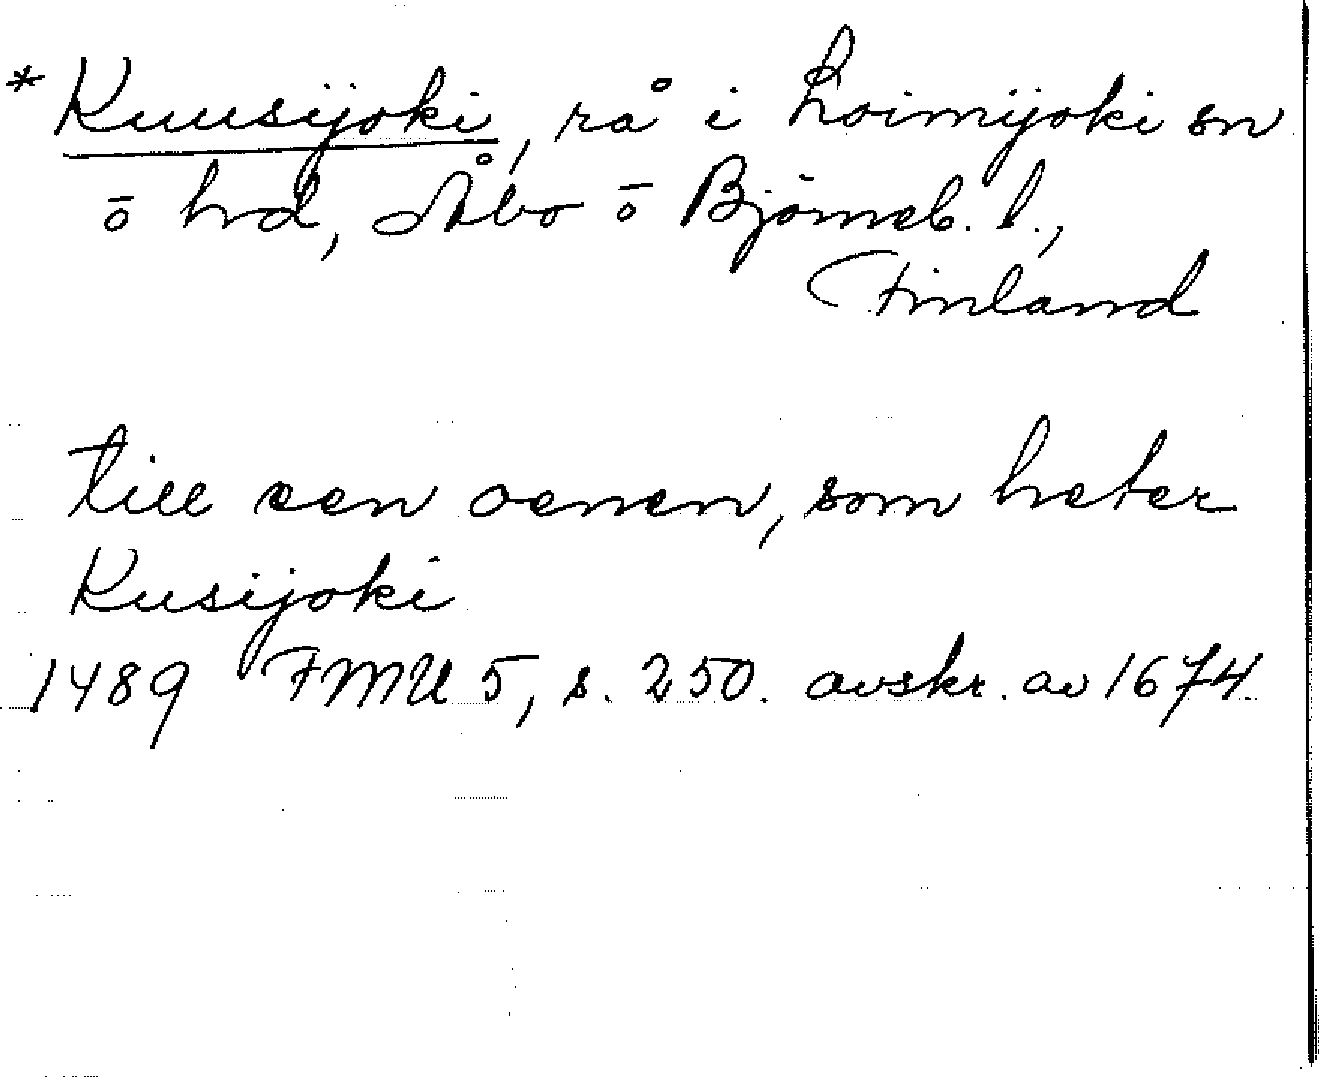 * Kuusijoki, rå i Loimijoki sn
ō hd, Åbo ō Björneb. l.,
Finland
till een oenen, som heter
Kusijoki
1489 FMU 5, s. 250. avskr. av 1674